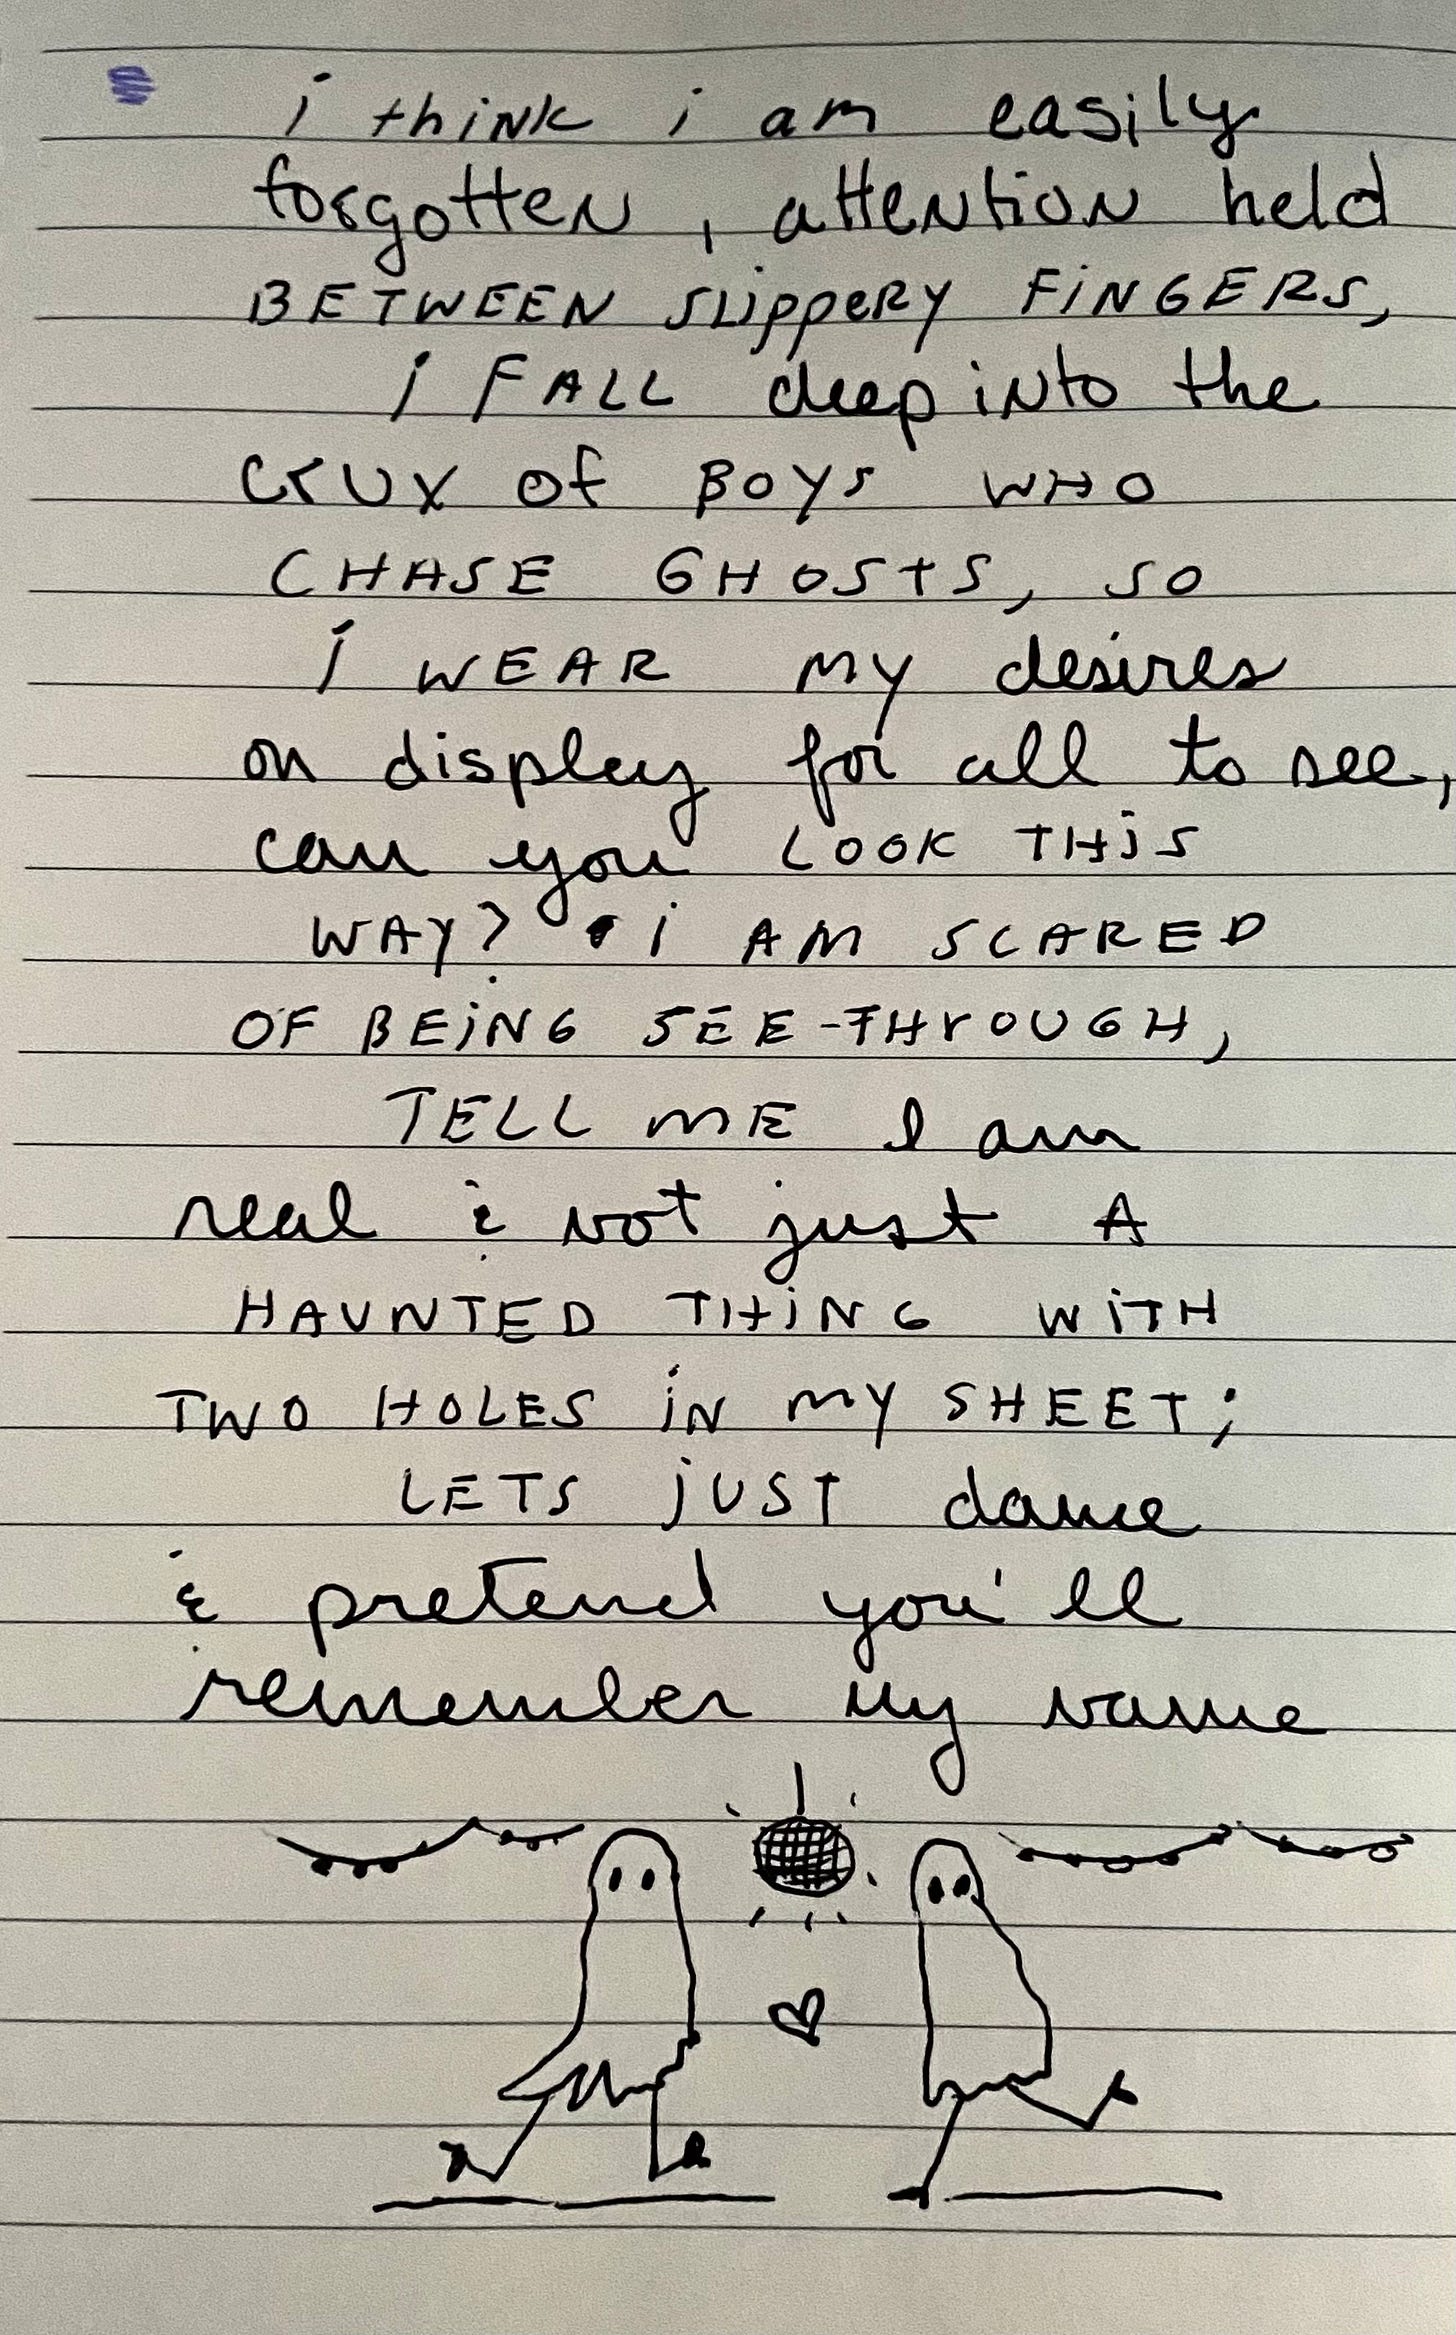 i think i am easily
forgotten, attention held
BETWEEN SLippERY FiNGERS,
i FALL deep iNto the
crux of BOYS WHO
CHASE GHOSTS, SO
i WEAR MY desires
on display for all to see,
can you LOOK THiS
WAY? i AM SCARED
OF BEiNG SEE-THrOUGH,
TELL ME I am
real & not just A
HAUNTED THiNG WiTH
TWO HOLES iN MY SHEET;
LETS jUST dance
& pretend you'll
remember my name